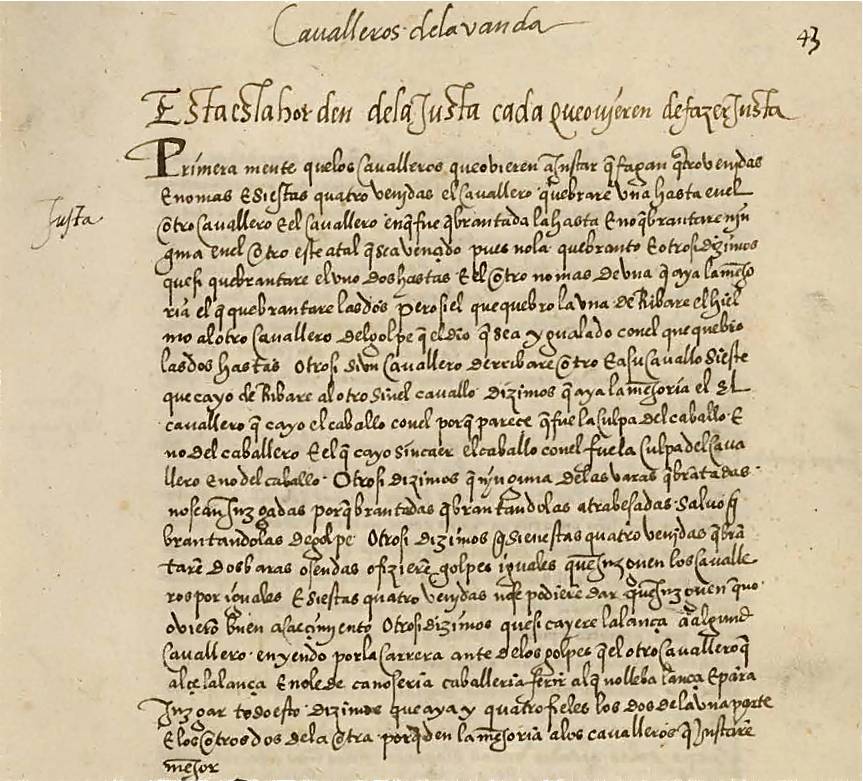 Cavalleros de la vanda
43
Esta es la horden de la Justa cada que ovieren de fazer Justa
Primera mente que los Cavalleros que ovieren a Justar q̃ fagan q̃tro venidas
E no mas E si estas quatro venjdas el Cavallero quebrare vna hasta en el
Justa
otro Cavallero E el Cavallero en q̃ fue q̃brantada la hasta E no q̃brantare njn
guna en el otro este atal q̃ sea vençido pues no la quebranto E otrosi dizimos
que si quebrantare el vno dos hastas E el otro no mas de vna q̃ aya la mejo
ria el q quebrantare las dos Pero si el que quebro la vna deRibare el hiel
mo al otro Cavallero del golpe q̃ el dio q̃ sea ygualado con el que quebro
las dos hastas Otrosi si vn Cavallero derribare otro E a su Cavallo si este
que cayo deRibare al otro sin el cavallo dizimos q̃ aya la mejoria el
cavallero q̃ cayo el caballo con el porq̃ parece q̃ fue la Culpa del caballo E
no del caballero E el q̃ cayo sin caer el caballo con el fue la Culpa del Cava
llero E no del caballo Otrosi dizimos q̃ njnguna de las varas q̃brãtadas
no sean Juzgadas por q̃brantadas q̃brantandolas atrabesadas salvo q̃
brantandolas de golpe Otrosi dizimos q̃ si en estas quatro venjdas q̃brã
tarẽ dos baras o sendas o fizierẽ golpes iguales que Juzguen los Cavalle
ros por iguales E si estas quatro venjdas no se podierẽ dar que Juzguen que no
ovierõ buen acaeçimento Otrosi dizimos que si cayere la lança a algund
Cavallero en yendo por la Carrera ante de los golpes q̃ el otro Cavallero q̃
alçe la lança E no le de ca no seria caballeria ferir al q̃ no lleba lança E para
Juzgar todo esto dizimos que aya y quatro fieles los dos de la vna parte
E los otros dos de la otra porq̃ den la mejoria a los cavalleros q̃ Justarẽ
mejor